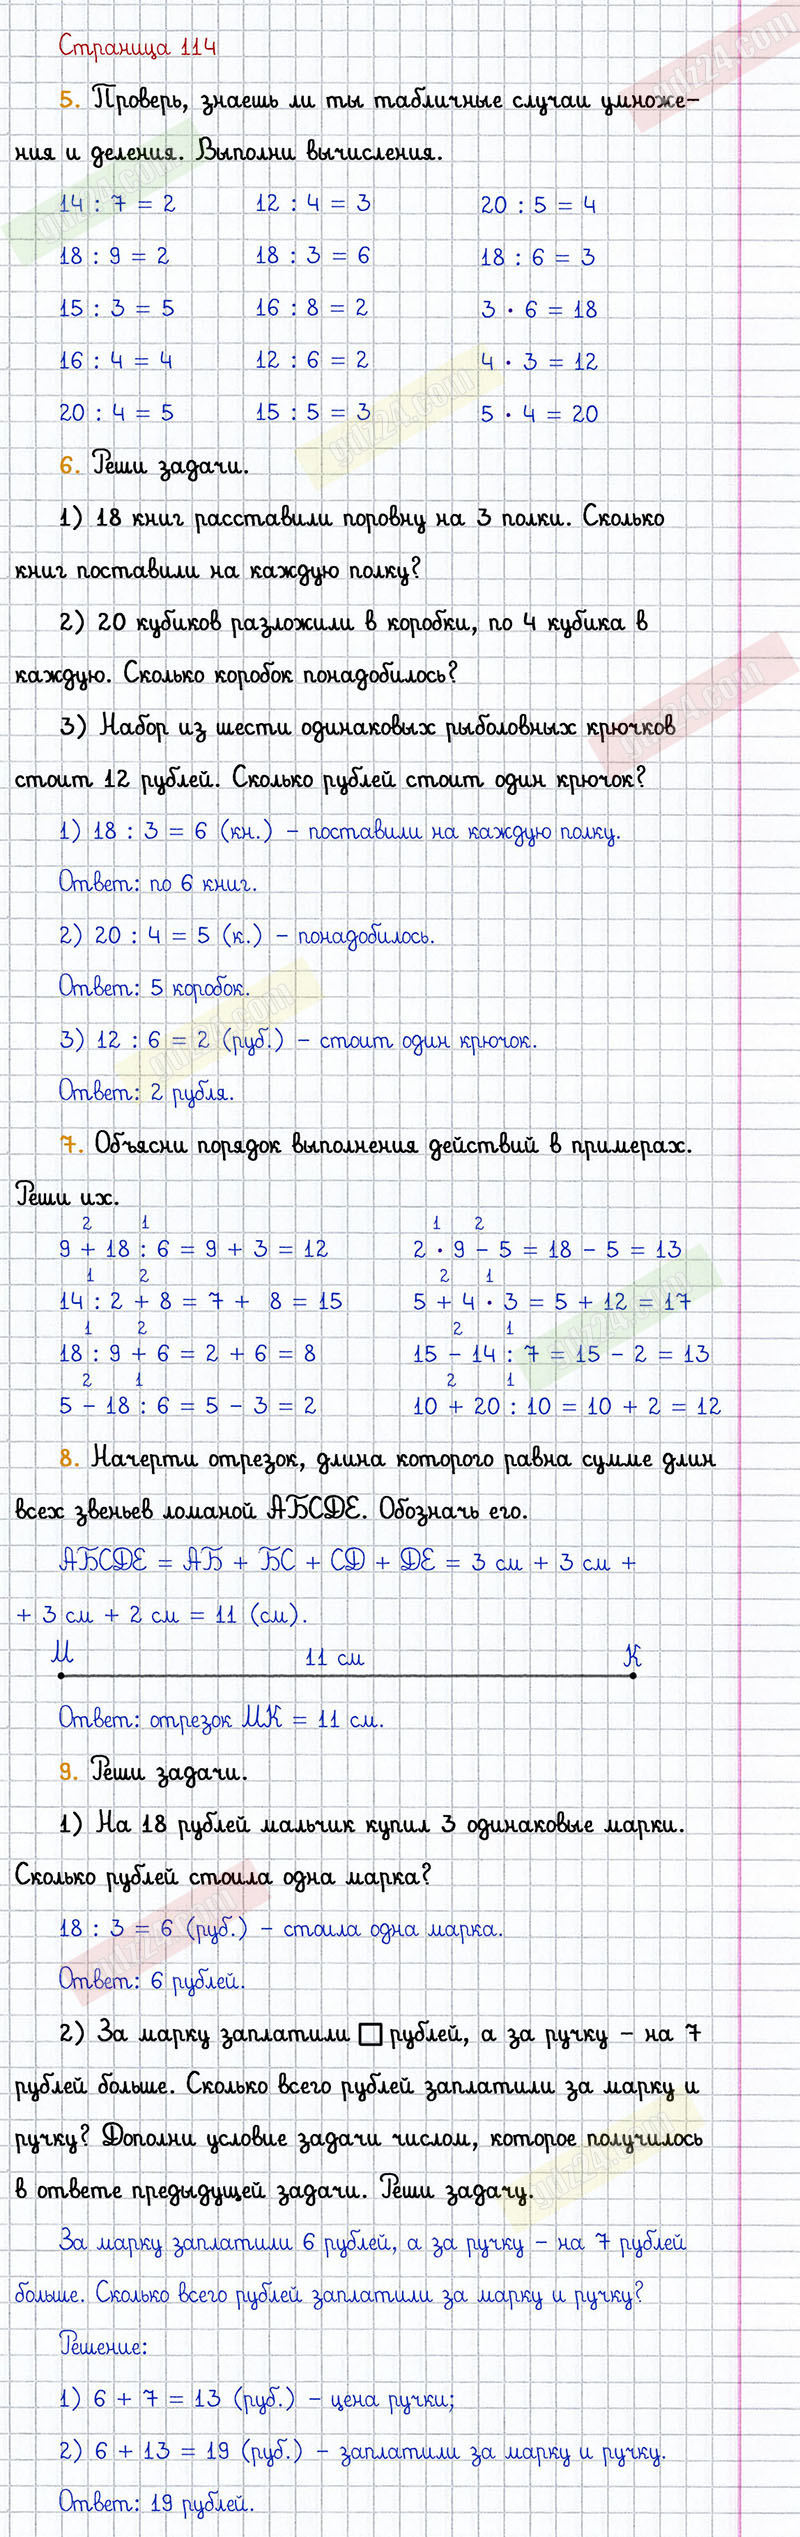 Страница 114
5. Проверь, знаешь ли ты табличные случаи умноже-
ния и деления. Выполни вычисления.
14 : 7 = 2 12 : 4 = 3 20 : 5 = 4
18 : 9 = 2 18 : 3 = 6 18 : 6 = 3
15 : 3 = 5 16 : 8 = 2 3 · 6 = 18
16 : 4 = 4 12 : 6 = 2 4 · 3 = 12
20 : 4 = 5 15 : 5 = 3 5 · 4 = 20
6. Реши задачи.
1) 18 книг расставили поровну на 3 полки. Сколько
книг поставили на каждую полку?
2) 20 кубиков разложили в коробки, по 4 кубика в
каждую. Сколько коробок понадобилось?
3) Набор из шести одинаковых рыболовных крючков
стоит 12 рублей. Сколько рублей стоит один крючок?
1) 18 : 3 = 6 (кн.) – поставили на каждую полку.
Ответ: по 6 книг.
2) 20 : 4 = 5 (к.) – понадобилось.
Ответ: 5 коробок.
3) 12 : 6 = 2 (руб.) – стоит один крючок.
Ответ: 2 рубля.
7. Объясни порядок выполнения действий в примерах.
Реши их.
2 1 1 2
9 + 18 : 6 = 9 + 3 = 12 2 · 9 – 5 = 18 – 5 = 13
1 2 2 1
14 : 2 + 8 = 7 + 8 = 15 5 + 4 · 3 = 5 + 12 = 17
1 2 2 1
18 : 9 + 6 = 2 + 6 = 8 15 – 14 : 7 = 15 – 2 = 13
2 1 2 1
5 – 18 : 6 = 5 – 3 = 2 10 + 20 : 10 = 10 + 2 = 12
8. Начерти отрезок, длина которого равна сумме длин
всех звеньев ломаной АБСДЕ. Обозначь его.
АБСДЕ = АБ + БС + СД + ДЕ = 3 см + 3 см +
+ 3 см + 2 см = 11 (см).
М 11 см К
Ответ: отрезок МК = 11 см.
9. Реши задачи.
1) На 18 рублей мальчик купил 3 одинаковые марки.
Сколько рублей стоила одна марка?
18 : 3 = 6 (руб.) – стоила одна марка.
Ответ: 6 рублей.
2) За марку заплатили □ рублей, а за ручку – на 7
рублей больше. Сколько всего рублей заплатили за марку и
ручку? Дополни условие задачи числом, которое получилось
в ответе предыдущей задачи. Реши задачу.
За марку заплатили 6 рублей, а за ручку – на 7 рублей
больше. Сколько всего рублей заплатили за марку и ручку?
Решение:
1) 6 + 7 = 13 (руб.) – цена ручки;
2) 6 + 13 = 19 (руб.) – заплатили за марку и ручку.
Ответ: 19 рублей.
gdz24.com
gdz24.com
gdz24.com
gdz24.com
gdz24.com
gdz24.com
gdz24.com
gdz24.com